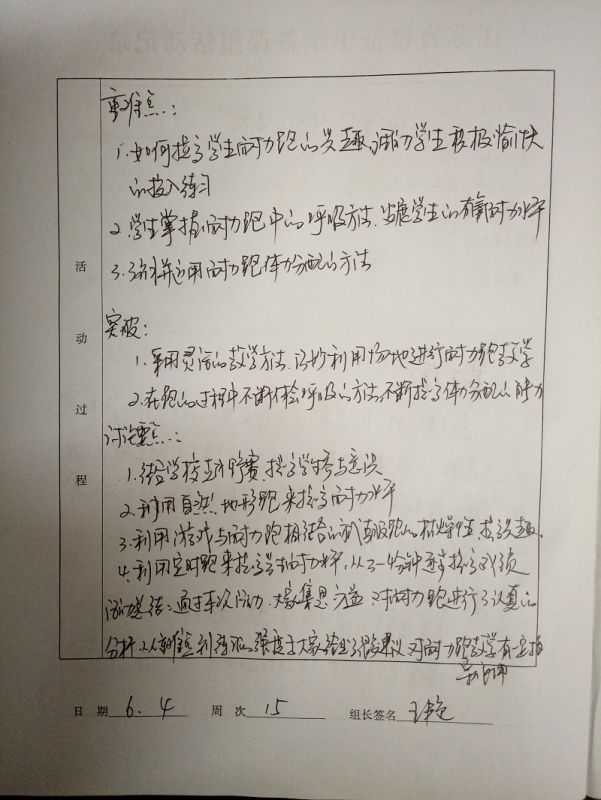 重难点：
1. 如何提高学生耐力跑的兴趣，调动学生积极愉快
的投入练习
2. 学生掌握耐力跑中的呼吸方法，发展学生的有氧耐力水平
3. 并运用耐力跑体力分配的方法
突破：
1. 采用灵活的教学方法，巧妙利用场地进行耐力跑教学
2. 在跑的过程中不断体验呼吸的方法，不断提高体力分配的能力
讨论要点：
1. 结合学校越野赛，提高学生参与意识
2. 利用自然地形跑来提高耐力水平
3. 利用游戏与耐力跑相结合的，跑的枯燥性，提高兴趣。
4. 利用定时跑来提高学生耐力水平，从2-4分钟逐步提高成绩
活动总结：通过本次活动，大家集思广益，对耐力跑进行了认真的
分析，从重难点到练习的强度，大家给出了很多建议，对耐力跑教学有一定指
导作用
活动过程
日期 6.4 周次 15 组长签名